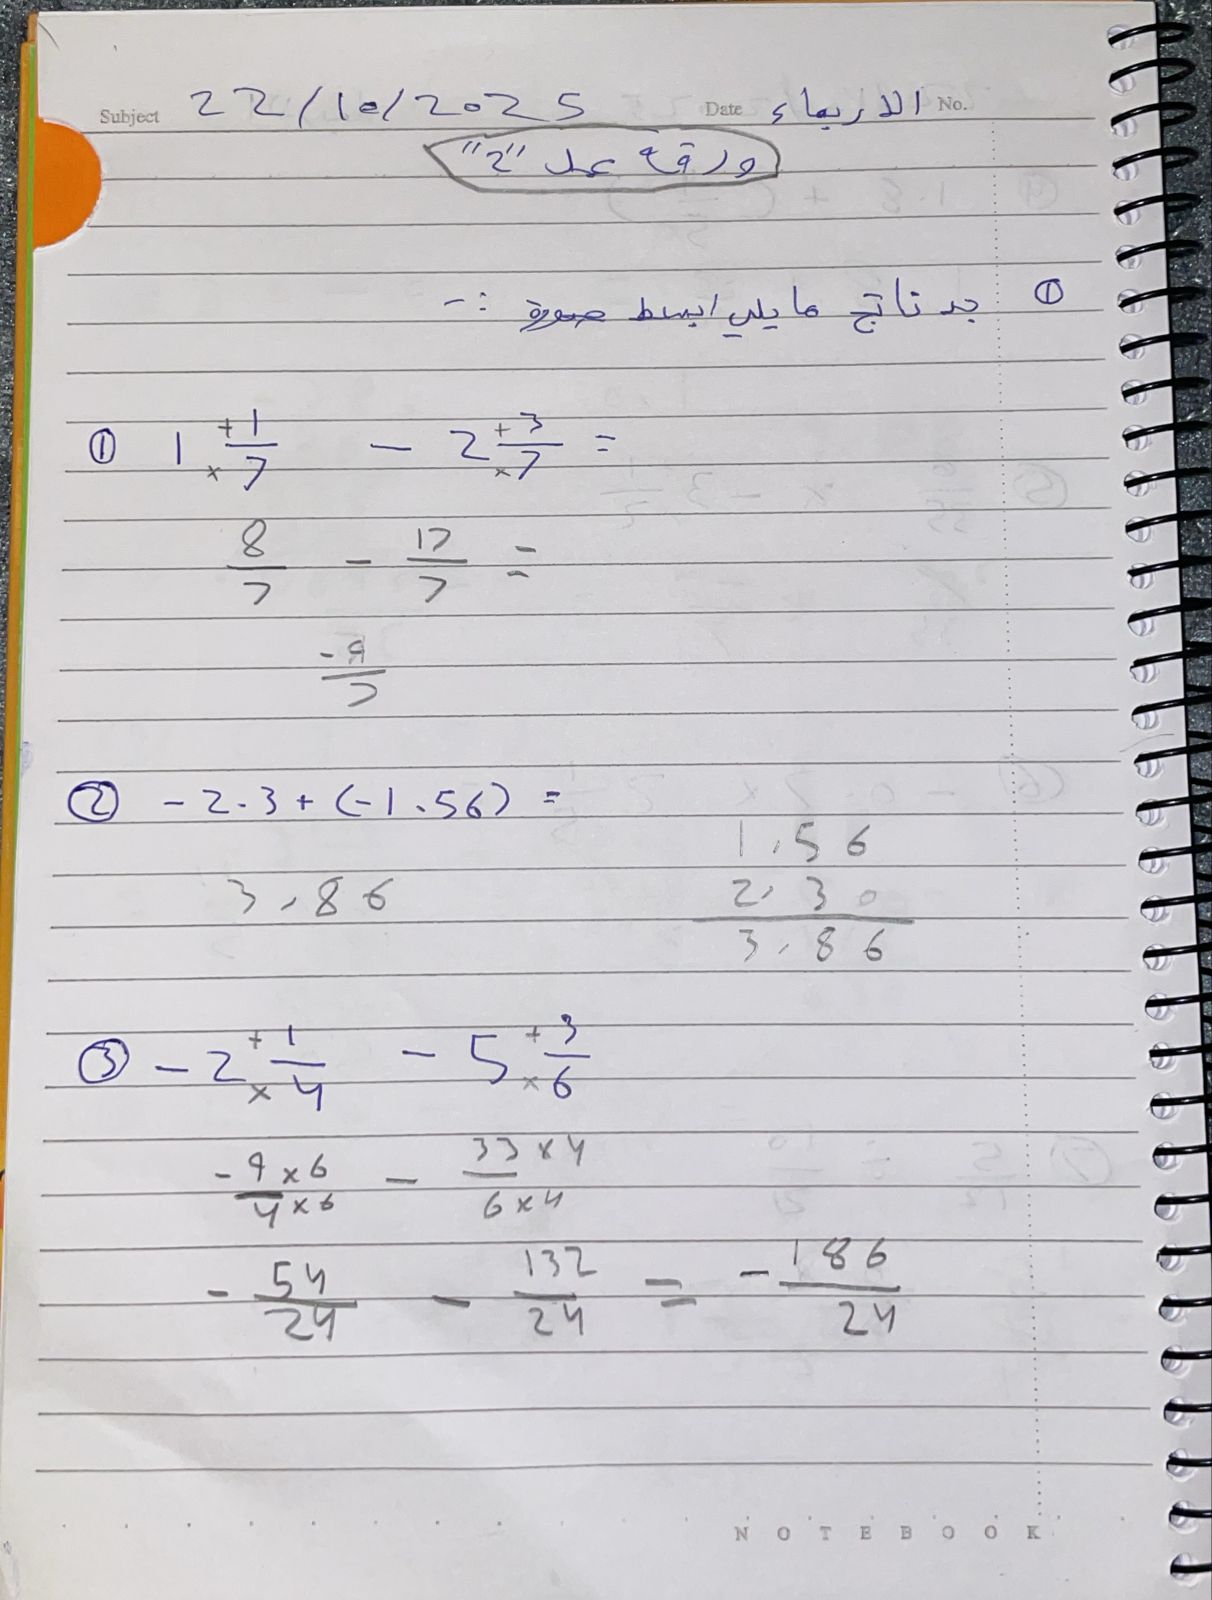 Subject 22/10/2025 Date الاربعاء No.
ورقة عمل "2"
① جد ناتج ما يلي ابسط صورة :-
① 1 + 1/7 × - 2 + 3/7 × =
8/7 - 17/7 =
-9/7
② -2.3 + (-1.56) =
1,56
3,86 2,30
3,86
③ -2 + 1/4 × - 5 + 3/6 ×
-9×6/4×6 - 33×4/6×4
-54/24 - 132/24 = -186/24
NOTEBOOK